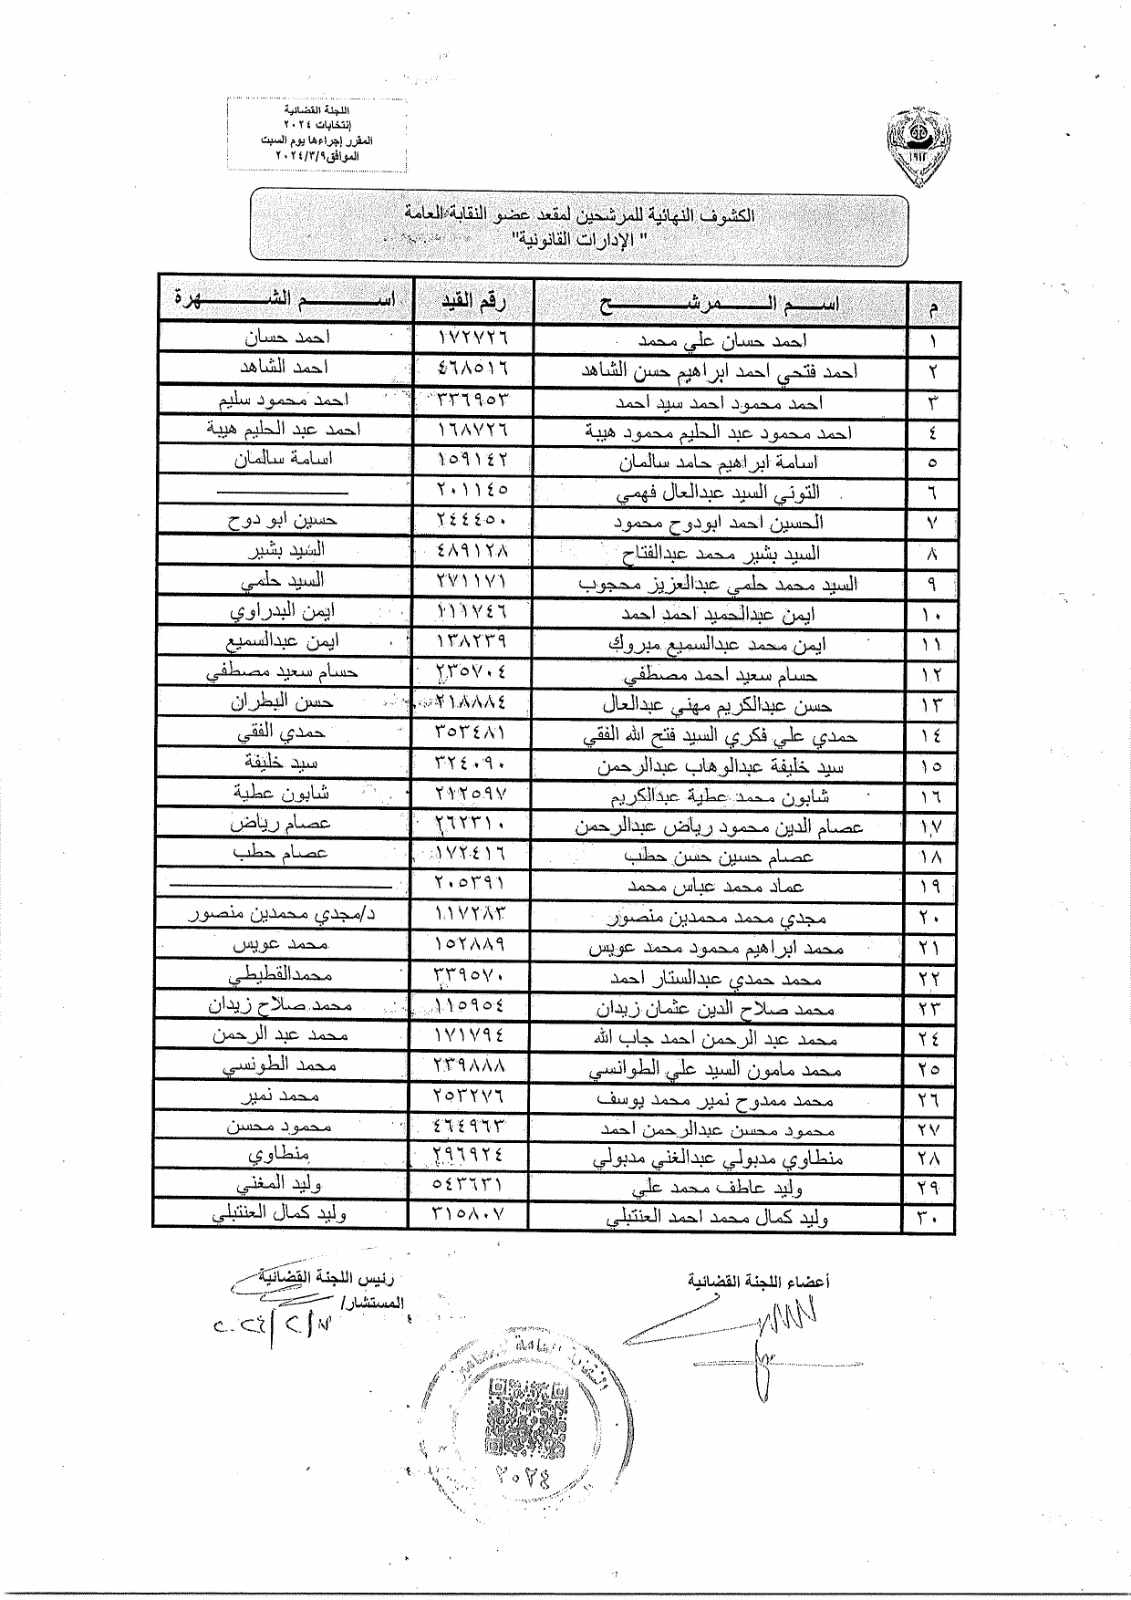 اللجنة القضائية
إنتخابات ٢٠٢٤
المقرر إجراءها يوم السبت
الموافق ٢٠٢٤/٣/٩
١٩١٢
الكشوف النهائية للمرشحين لمقعد عضو النقابة العامة
" الإدارات القانونية"
م اسم المرشح رقم القيد اسم الشهرة
١ احمد حسان علي محمد ١٧٢٧٢٦ احمد حسان
٢ احمد فتحي احمد ابراهيم حسن الشاهد ٤٦٨٥١٦ احمد الشاهد
٣ احمد محمود احمد سيد احمد ٣٣٦٩٥٣ احمد محمود سليم
٤ احمد محمود عبد الحليم محمود هيبة ١٦٨٧٢٦ احمد عبد الحليم هيبة
٥ اسامة ابراهيم حامد سالمان ١٥٩١٤٢ اسامة سالمان
٦ التوني السيد عبدالعال فهمي ٢٠١١٤٥
٧ الحسين احمد ابودوح محمود ٢٤٤٤٥٠ حسين ابو دوح
٨ السيد بشير محمد عبدالفتاح ٤٨٩١٢٨ السيد بشير
٩ السيد محمد حلمي عبدالعزيز محجوب ٢٧١١٧١ السيد حلمي
١٠ ايمن عبدالحميد احمد احمد ١١١٧٤٦ ايمن البدراوي
١١ ايمن محمد عبدالسميع مبروك ١٣٨٢٣٩ ايمن عبدالسميع
١٢ حسام سعيد احمد مصطفي ٢٣٥٧٠٤ حسام سعيد مصطفي
١٣ حسن عبدالكريم مهني عبدالعال ٢١٨٨٨٤ حسن البطران
١٤ حمدي علي فكري السيد فتح الله الفقي ٣٥٣٤٨١ حمدي الفقي
١٥ سيد خليفة عبدالوهاب عبدالرحمن ٣٢٤٠٩٠ سيد خليفة
١٦ شابون محمد عطية عبدالكريم ٢١٢٥٩٧ شابون عطية
١٧ عصام الدين محمود رياض عبدالرحمن ٢٦٢٣١٠ عصام رياض
١٨ عصام حسين حسن حطب ١٧٢٤١٦ عصام حطب
١٩ عماد محمد عباس محمد ٢٠٥٣٩١
٢٠ مجدي محمد محمدين منصور ١١٧٢٨٣ د/مجدي محمدين منصور
٢١ محمد ابراهيم محمود محمد عويس ١٥٢٨٨٩ محمد عويس
٢٢ محمد حمدي عبدالستار احمد ٣٣٩٥٧٠ محمدالقطيطي
٢٣ محمد صلاح الدين عثمان زيدان ١١٥٩٥٤ محمد صلاح زيدان
٢٤ محمد عبد الرحمن احمد جاب الله ١٧١٧٩٤ محمد عبد الرحمن
٢٥ محمد مامون السيد علي الطوانسي ٢٣٩٨٨٨ محمد الطونسي
٢٦ محمد ممدوح نمير محمد يوسف ٢٥٣٢٧٦ محمد نمير
٢٧ محمود محسن عبدالرحمن احمد ٤٦٤٩٦٣ محمود محسن
٢٨ منطاوي مدبولي عبدالغني مدبولي ٢٩٦٩٢٤ منطاوي
٢٩ وليد عاطف محمد علي ٥٤٣٦٣١ وليد المغني
٣٠ وليد كمال محمد احمد العنتبلي ٣١٥٨٠٧ وليد كمال العنتبلي
أعضاء اللجنة القضائية
رئيس اللجنة القضائية
المستشار/
النقابة العامة للمحامين
٢٠٢٤